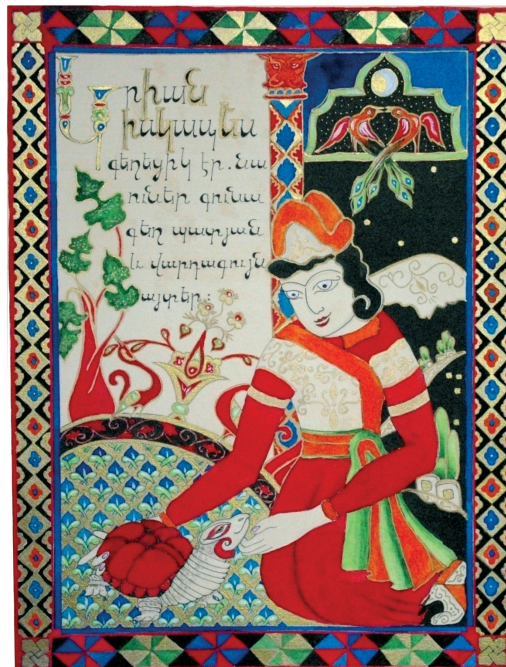 Արիան
իսկապես
գեղեցիկ էր. նա
ուներ գունա
գեղ պատյան
և վարդագույն
այտեր։